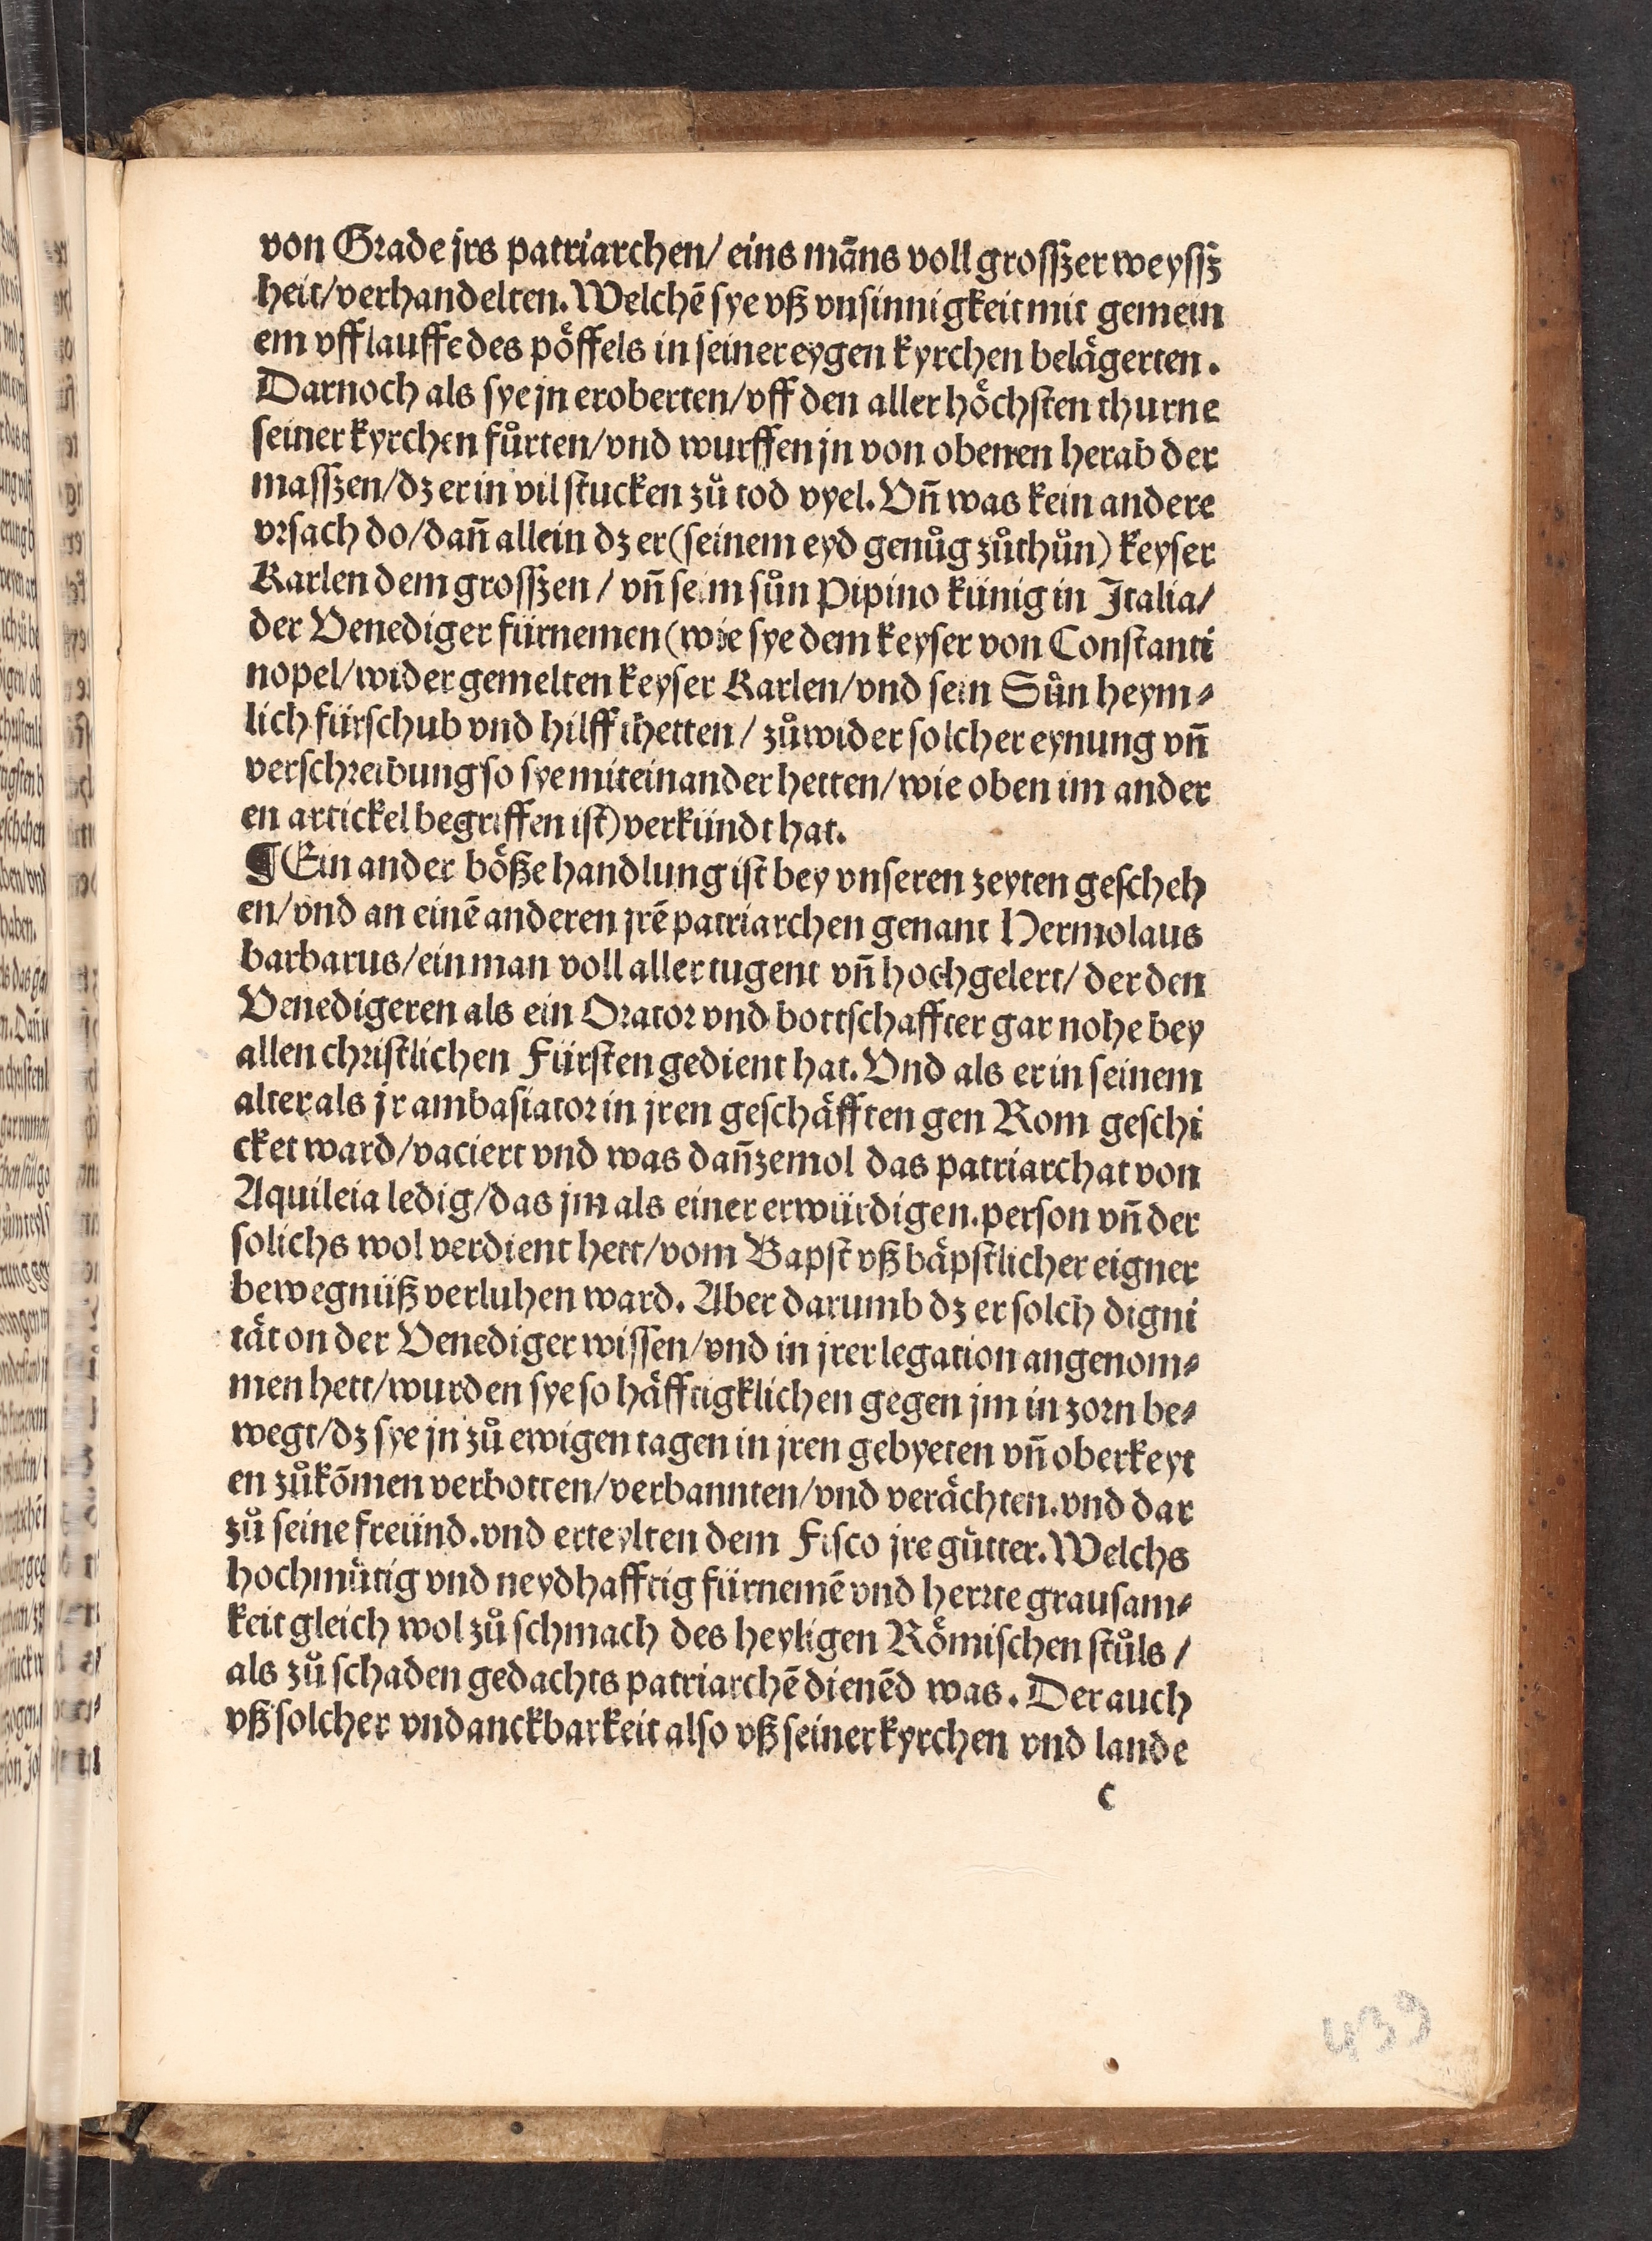 von Grade jrs patriarchen/ eins mãns voll grosſzer weysſz
heit/verhandelten. Welchẽ sye vß vnsinnigkeit mit gemein
em vfflauffe des pöffels in seiner eygen kyrchen belägerten.
Darnoch als sye jn eroberten/vff den aller höchsten thurne
seiner kyrchen fůrten/vnd wurffen jn von obenen herab der
masſzen/dz er in vil stucken zů tod vyel. Vñ was kein andere
vrsach do/dañ allein dz er (seinem eyd genůg zůthůn) keyser
Karlen dem grosſzen / vñ seim sůn Pipino künig in Italia/
der Venediger fürnemen (wie sye dem keyser von Constanti
nopel/wider gemelten keyser Karlen/vnd sein Sůn heym⸗
lich fürschub vnd hilff thetten / zůwider solcher eynung vñ
verschreibung so sye miteinander hetten/wie oben im ander
en artickel begriffen ist) verkündt hat.
¶Ein ander böße handlung ist bey vnseren zeyten gescheh
en/vnd an einẽ anderen jrẽ patriarchen genant Hermolaus
barbarus/ein man voll aller tugent vñ hochgelert/ der den
Venedigeren als ein Orator vnd bottschaffter gar nohe bey
allen christlichen Fürsten gedient hat. Vnd als er in seinem
alter als jr ambasiator in jren geschäfften gen Rom geschi
cket ward/vaciert vnd was dañzemol das patriarchat von
Aquileia ledig/das jm als einer erwürdigen.person vñ der
solichs wol verdient hett/vom Bapst vß bäpstlicher eigner
bewegnüß verluhen ward. Aber darumb dz er solch digni
tät on der Venediger wissen/vnd in jrer legation angenom⸗
men hett/wurden sye so häfftigklichen gegen jm in zorn be⸗
wegt/dz sye jn zů ewigen tagen in jren gebyeten vñ oberkeyt
en zůkõmen verbotten/verbannten/vnd verächten.vnd dar
zů seine freünd.vnd erteylten dem Fisco jre gůtter. Welchs
hochmütig vnd neydhafftig fürnemẽ vnd herrte grausam⸗
keit gleich wol zů schmach des heyligen Römischen stůls /
als zů schaden gedachts patriarchẽ dienẽd was. Der auch
vß solcher vndanckbarkeit also vß seiner kyrchen vnd lande
c
439